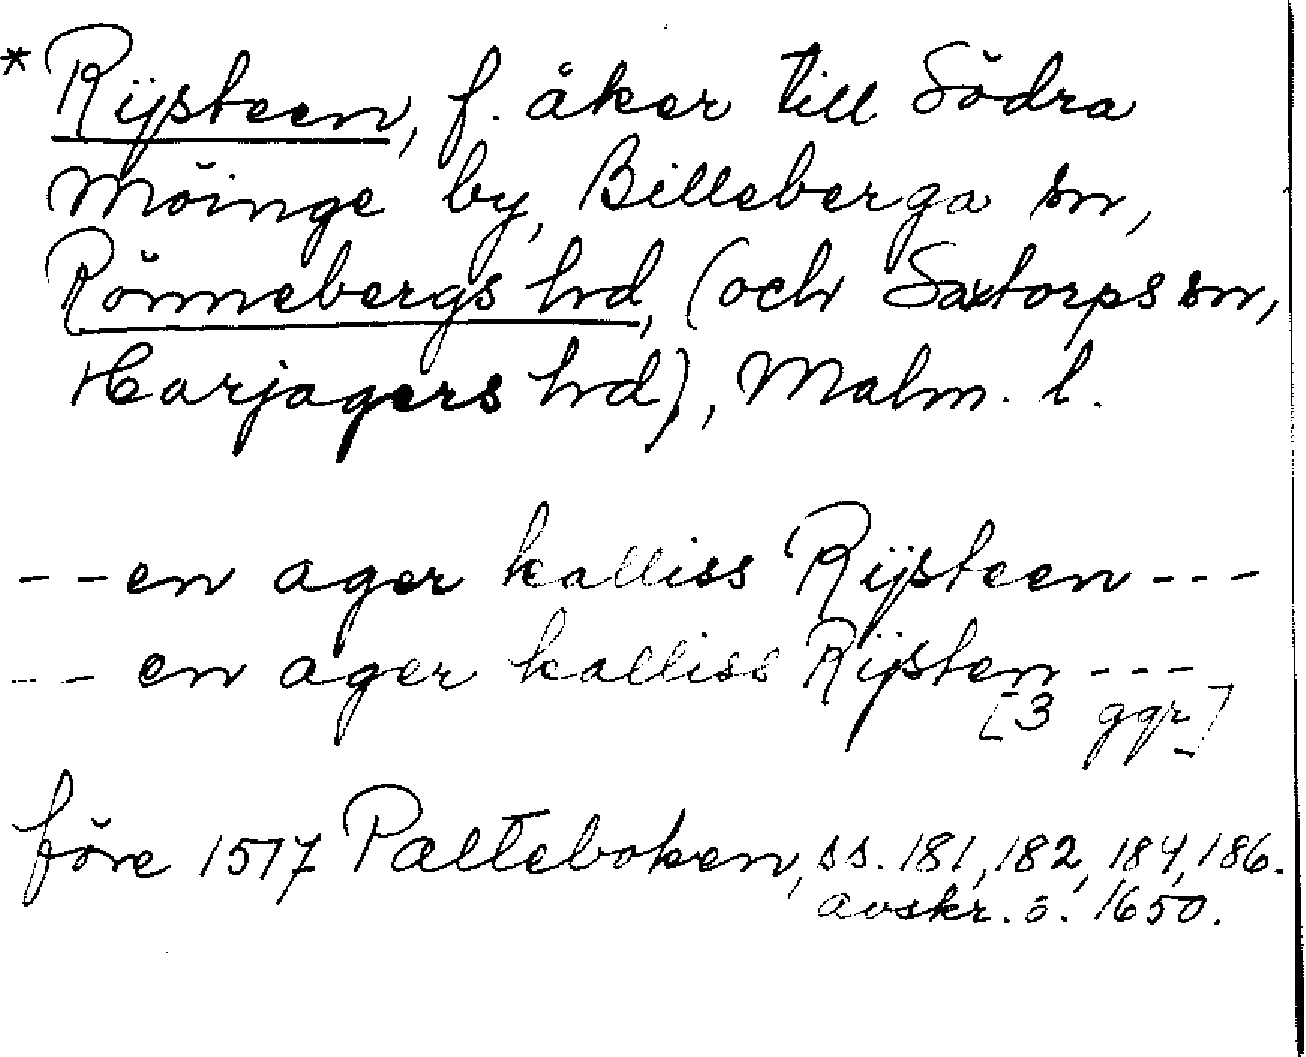 * Rijsteen, f. åker till Södra
Möinge by, Billeberga sn,
Rönnebergs hrd, (och Saxtorps sn,
Harjagers hrd), Malm. l.
- - en ager kalliss Rijsteen - - -
- - en ager kalliss Rijsten - - -
[3 ggr]
före 1517 Palteboken, ss. 181, 182, 184, 186.
avskr. ö. 1650.